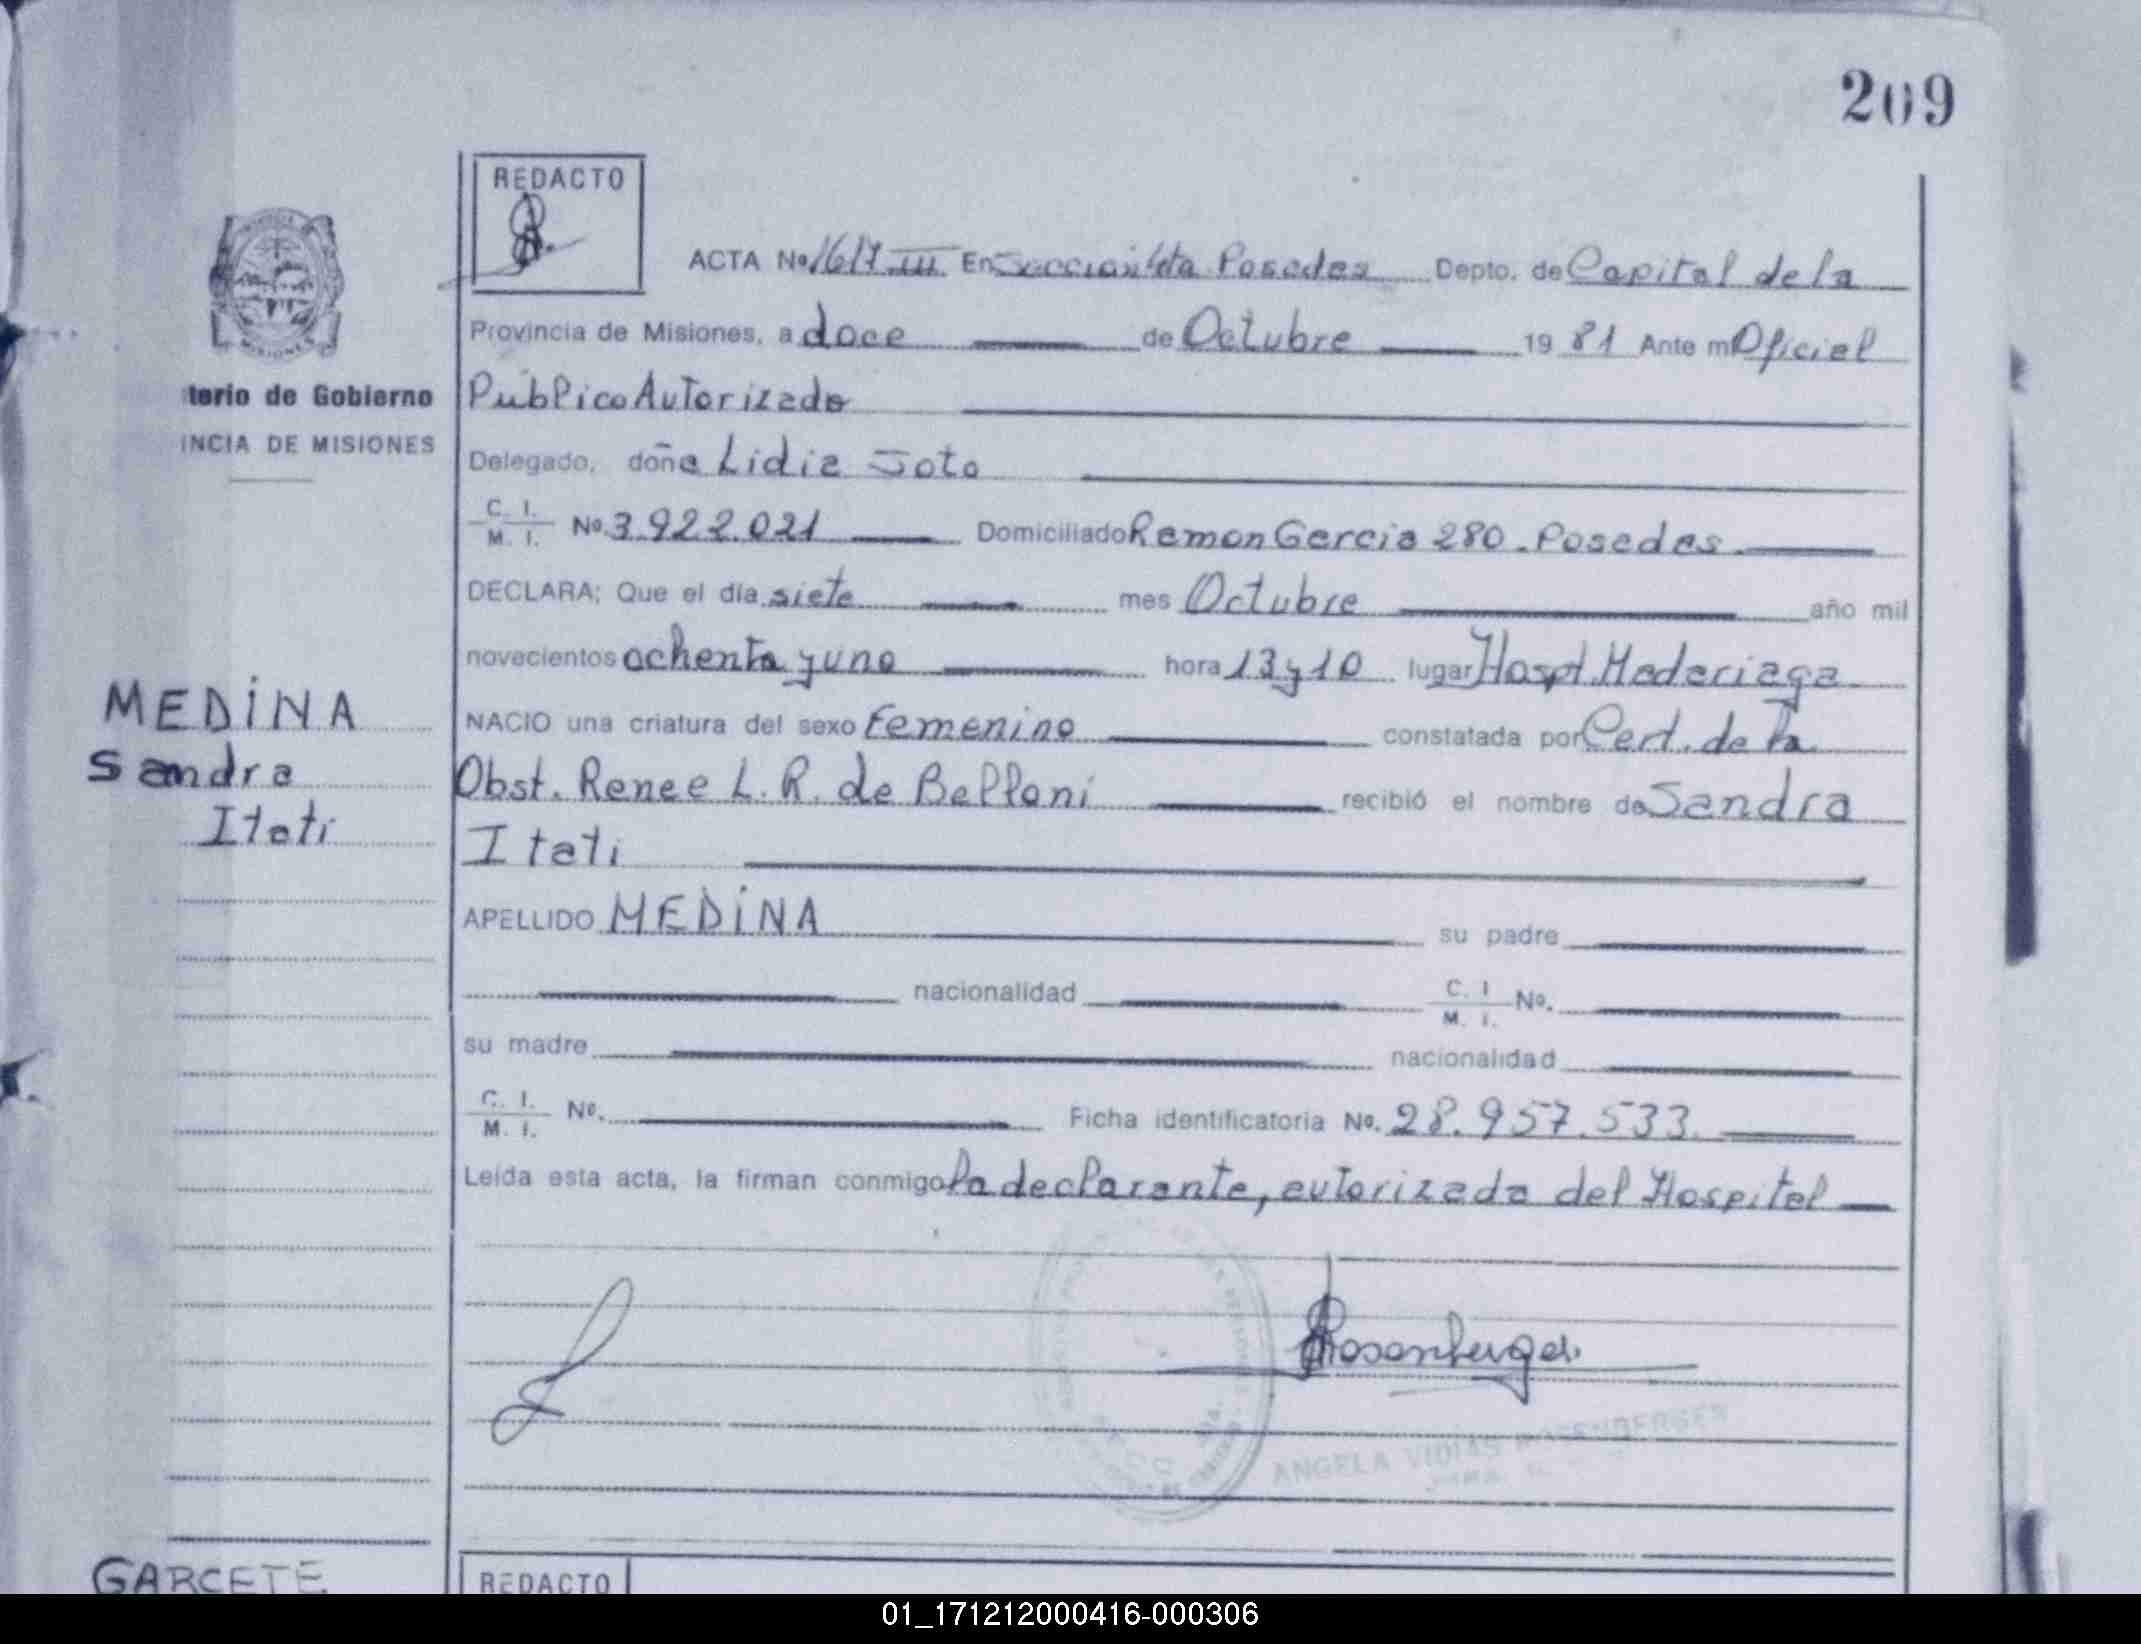 209
REDACTO
ACTA No 1617 III En Sección 1ta Posadas Depto. de Capital de la
Provincia de Misiones, a doce de Octubre 19 81 Ante mi Oficial
Público Autorizado
terio de Gobierno
INCIA DE MISIONES
Delegado, doña Lidia Soto
C. I.
M. I. No. 3.922.021 Domiciliado Ramon Garcia 280 - Posadas
DECLARA; Que el día siete mes Octubre año mil
novecientos ochenta y uno hora 13 y 10 lugar Hospt. Madariaga
MEDINA
Sandra
Itati
NACIO una criatura del sexo femenino constatada por Cert. de la
Obst. Renee L. R. de Belloni recibió el nombre de Sandra
Itati
APELLIDO MEDINA su padre
nacionalidad C. I. M. I. No.
su madre nacionalidad
C. I. M. I. No. Ficha identificatoria No. 28.957.533.
Leída esta acta, la firman conmigo la declarante, autorizada del Hospital
Rosenberger
ANGELA ROSENBERGER
GARCETE
REDACTO
01_171212000416-000306